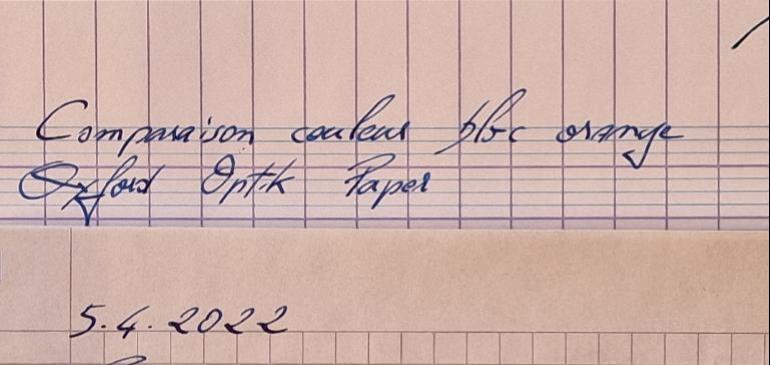 Comparaison couleur bloc orange
Oxford Optik Paper
5.4.2022